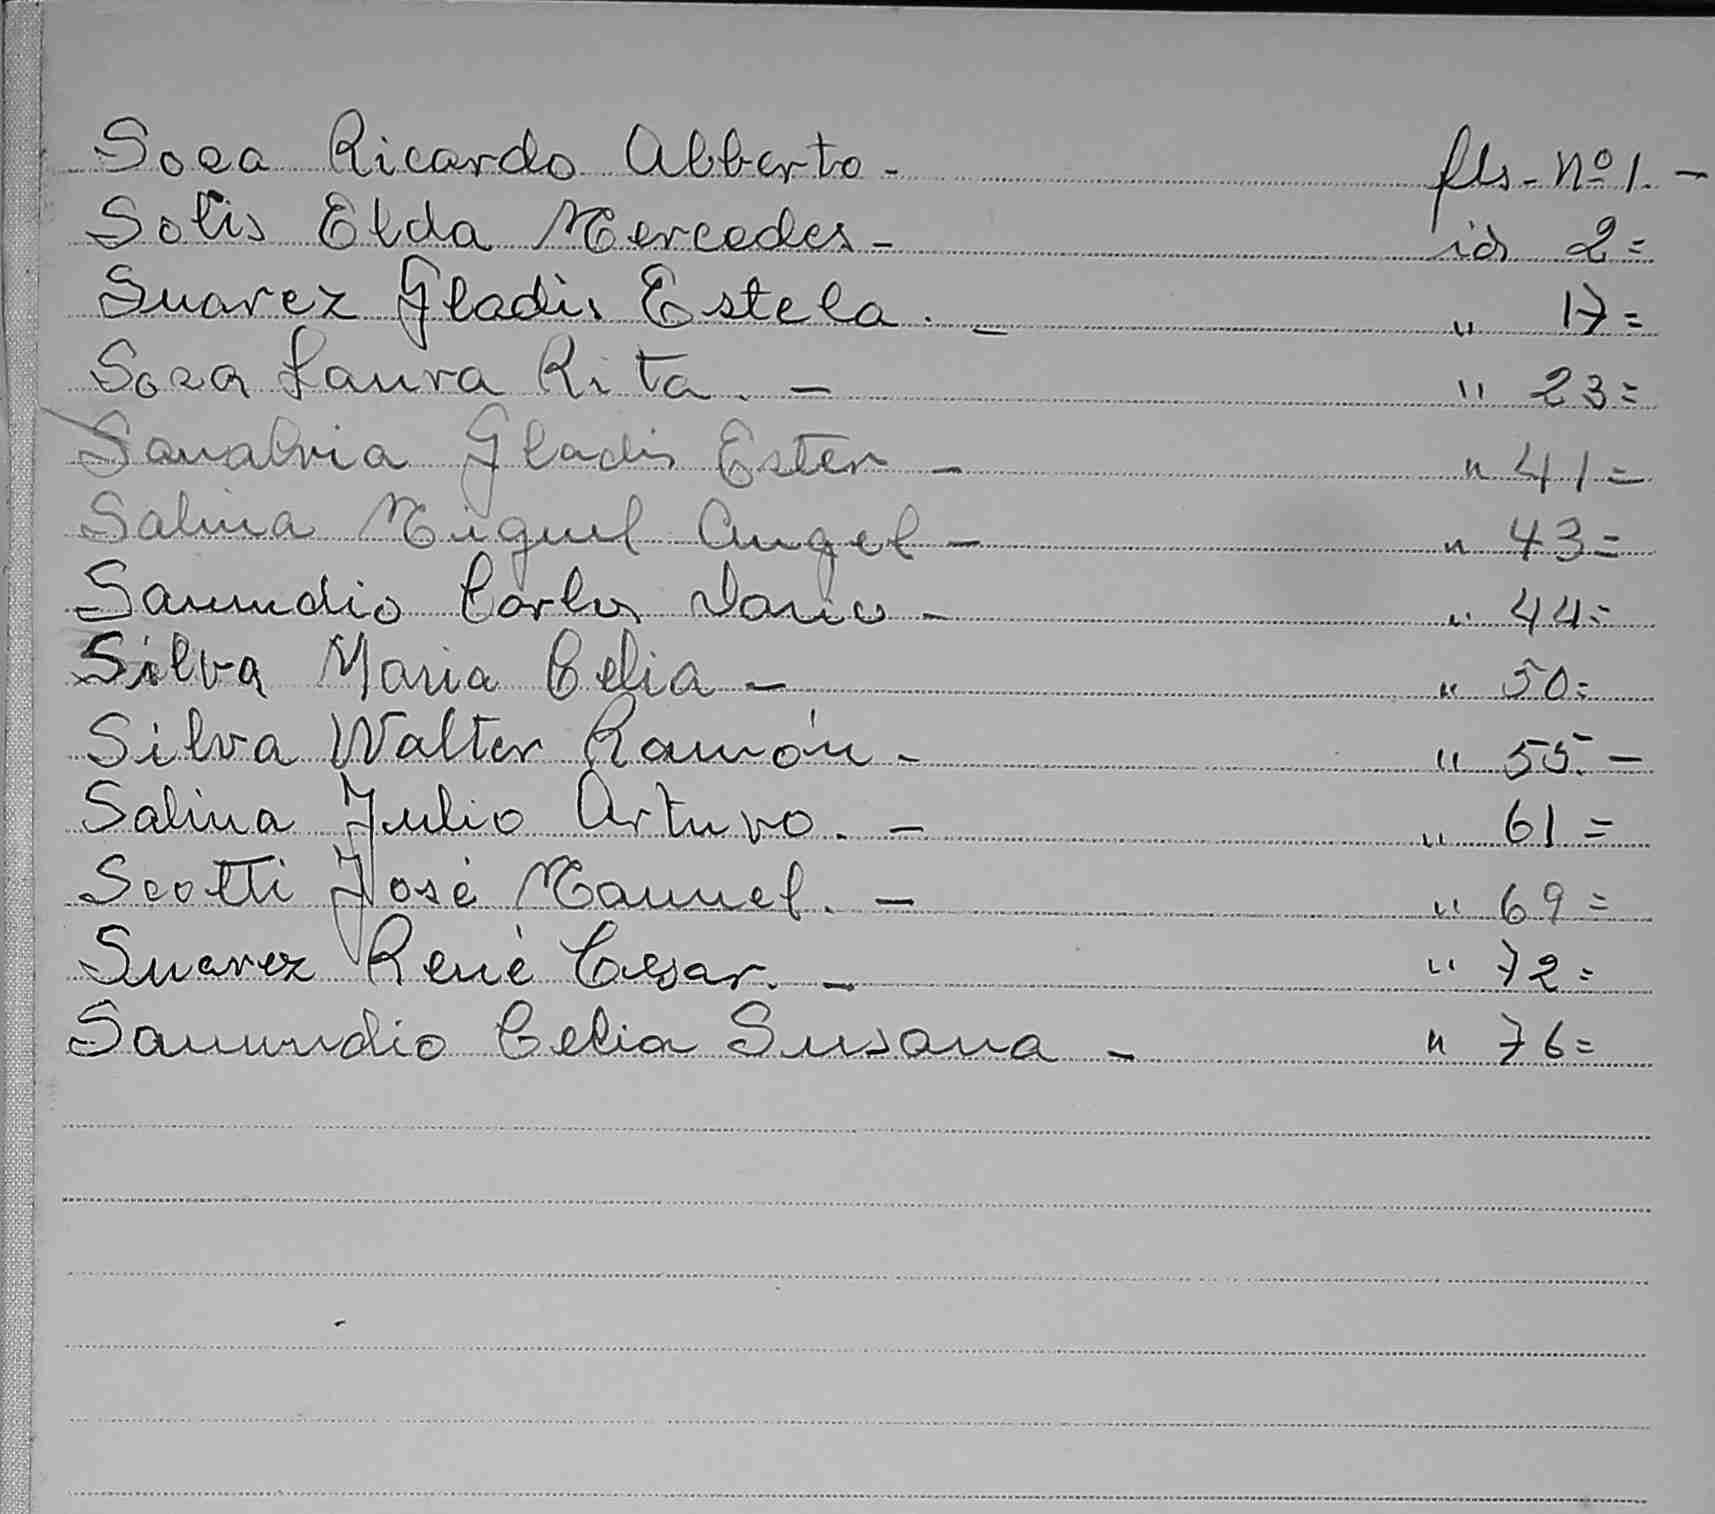 Sosa Ricardo Alberto - fls - nº 1. -
Solis Elda Mercedes - id 2 =
Suarez Gladis Estela. - " 17 =
Sosa Laura Rita. - " 23 =
Sanabria Gladis Ester - " 41 =
Salina Miguel Angel - " 43 =
Samudio Carlos Dario - " 44 =
Silva Maria Celia - " 50 =
Silva Walter Ramón. - " 55. -
Salina Julio Arturo. - " 61 =
Scotti José Manuel. - " 69 =
Suarez René Cesar. - " 72 =
Samudio Celia Susana - " 76 =